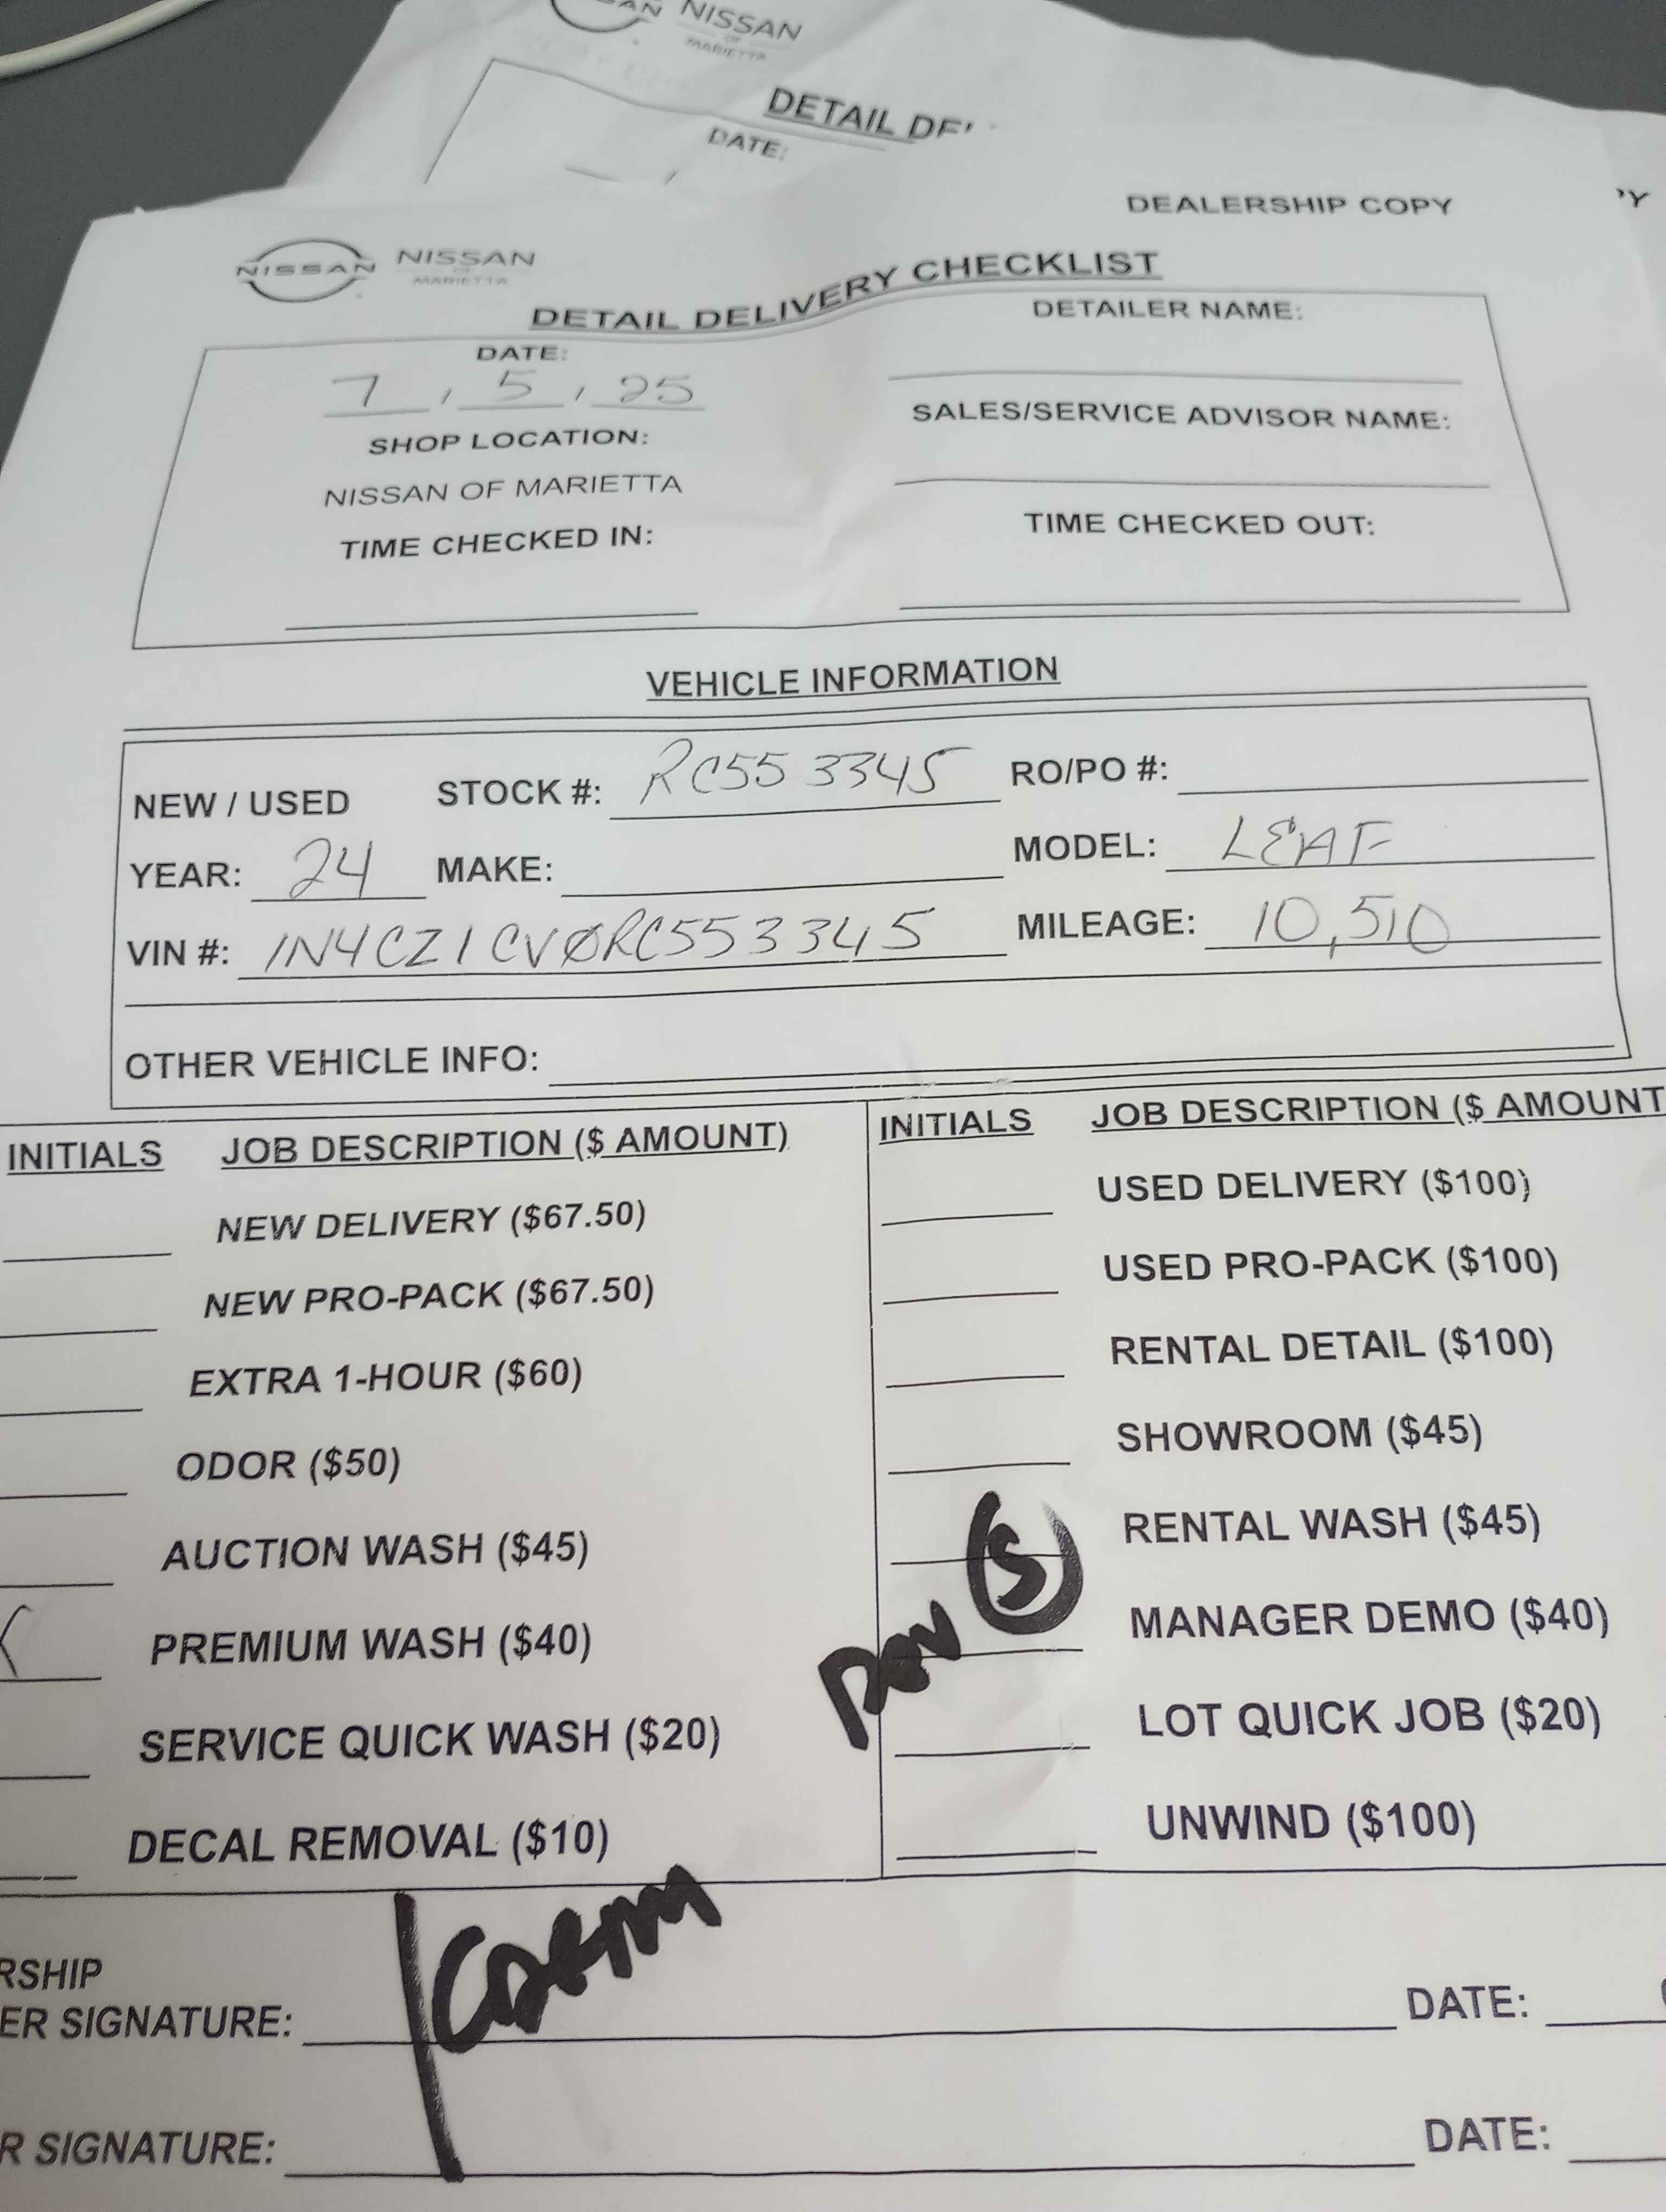 NISSAN
OF
MARIETTA
DETAIL DE
DATE:
DEALERSHIP COPY
PY
NISSAN NISSAN
OF
MARIETTA
DETAIL DELIVERY CHECKLIST
DATE: DETAILER NAME:
7 / 5 / 25
SHOP LOCATION: SALES/SERVICE ADVISOR NAME:
NISSAN OF MARIETTA
TIME CHECKED IN: TIME CHECKED OUT:
VEHICLE INFORMATION
NEW / USED STOCK #: RC553345 RO/PO #:
YEAR: 24 MAKE: MODEL: LEAF
VIN #: 1N4CZ1CV0RC553345 MILEAGE: 10,510
OTHER VEHICLE INFO:
INITIALS JOB DESCRIPTION ($ AMOUNT) INITIALS JOB DESCRIPTION ($ AMOUNT
NEW DELIVERY ($67.50) USED DELIVERY ($100)
NEW PRO-PACK ($67.50) USED PRO-PACK ($100)
EXTRA 1-HOUR ($60) RENTAL DETAIL ($100)
ODOR ($50) SHOWROOM ($45)
AUCTION WASH ($45) RENTAL WASH ($45)
PREMIUM WASH ($40) MANAGER DEMO ($40)
SERVICE QUICK WASH ($20) LOT QUICK JOB ($20)
DECAL REMOVAL ($10) UNWIND ($100)
RSHIP
ER SIGNATURE: DATE:
R SIGNATURE: DATE: